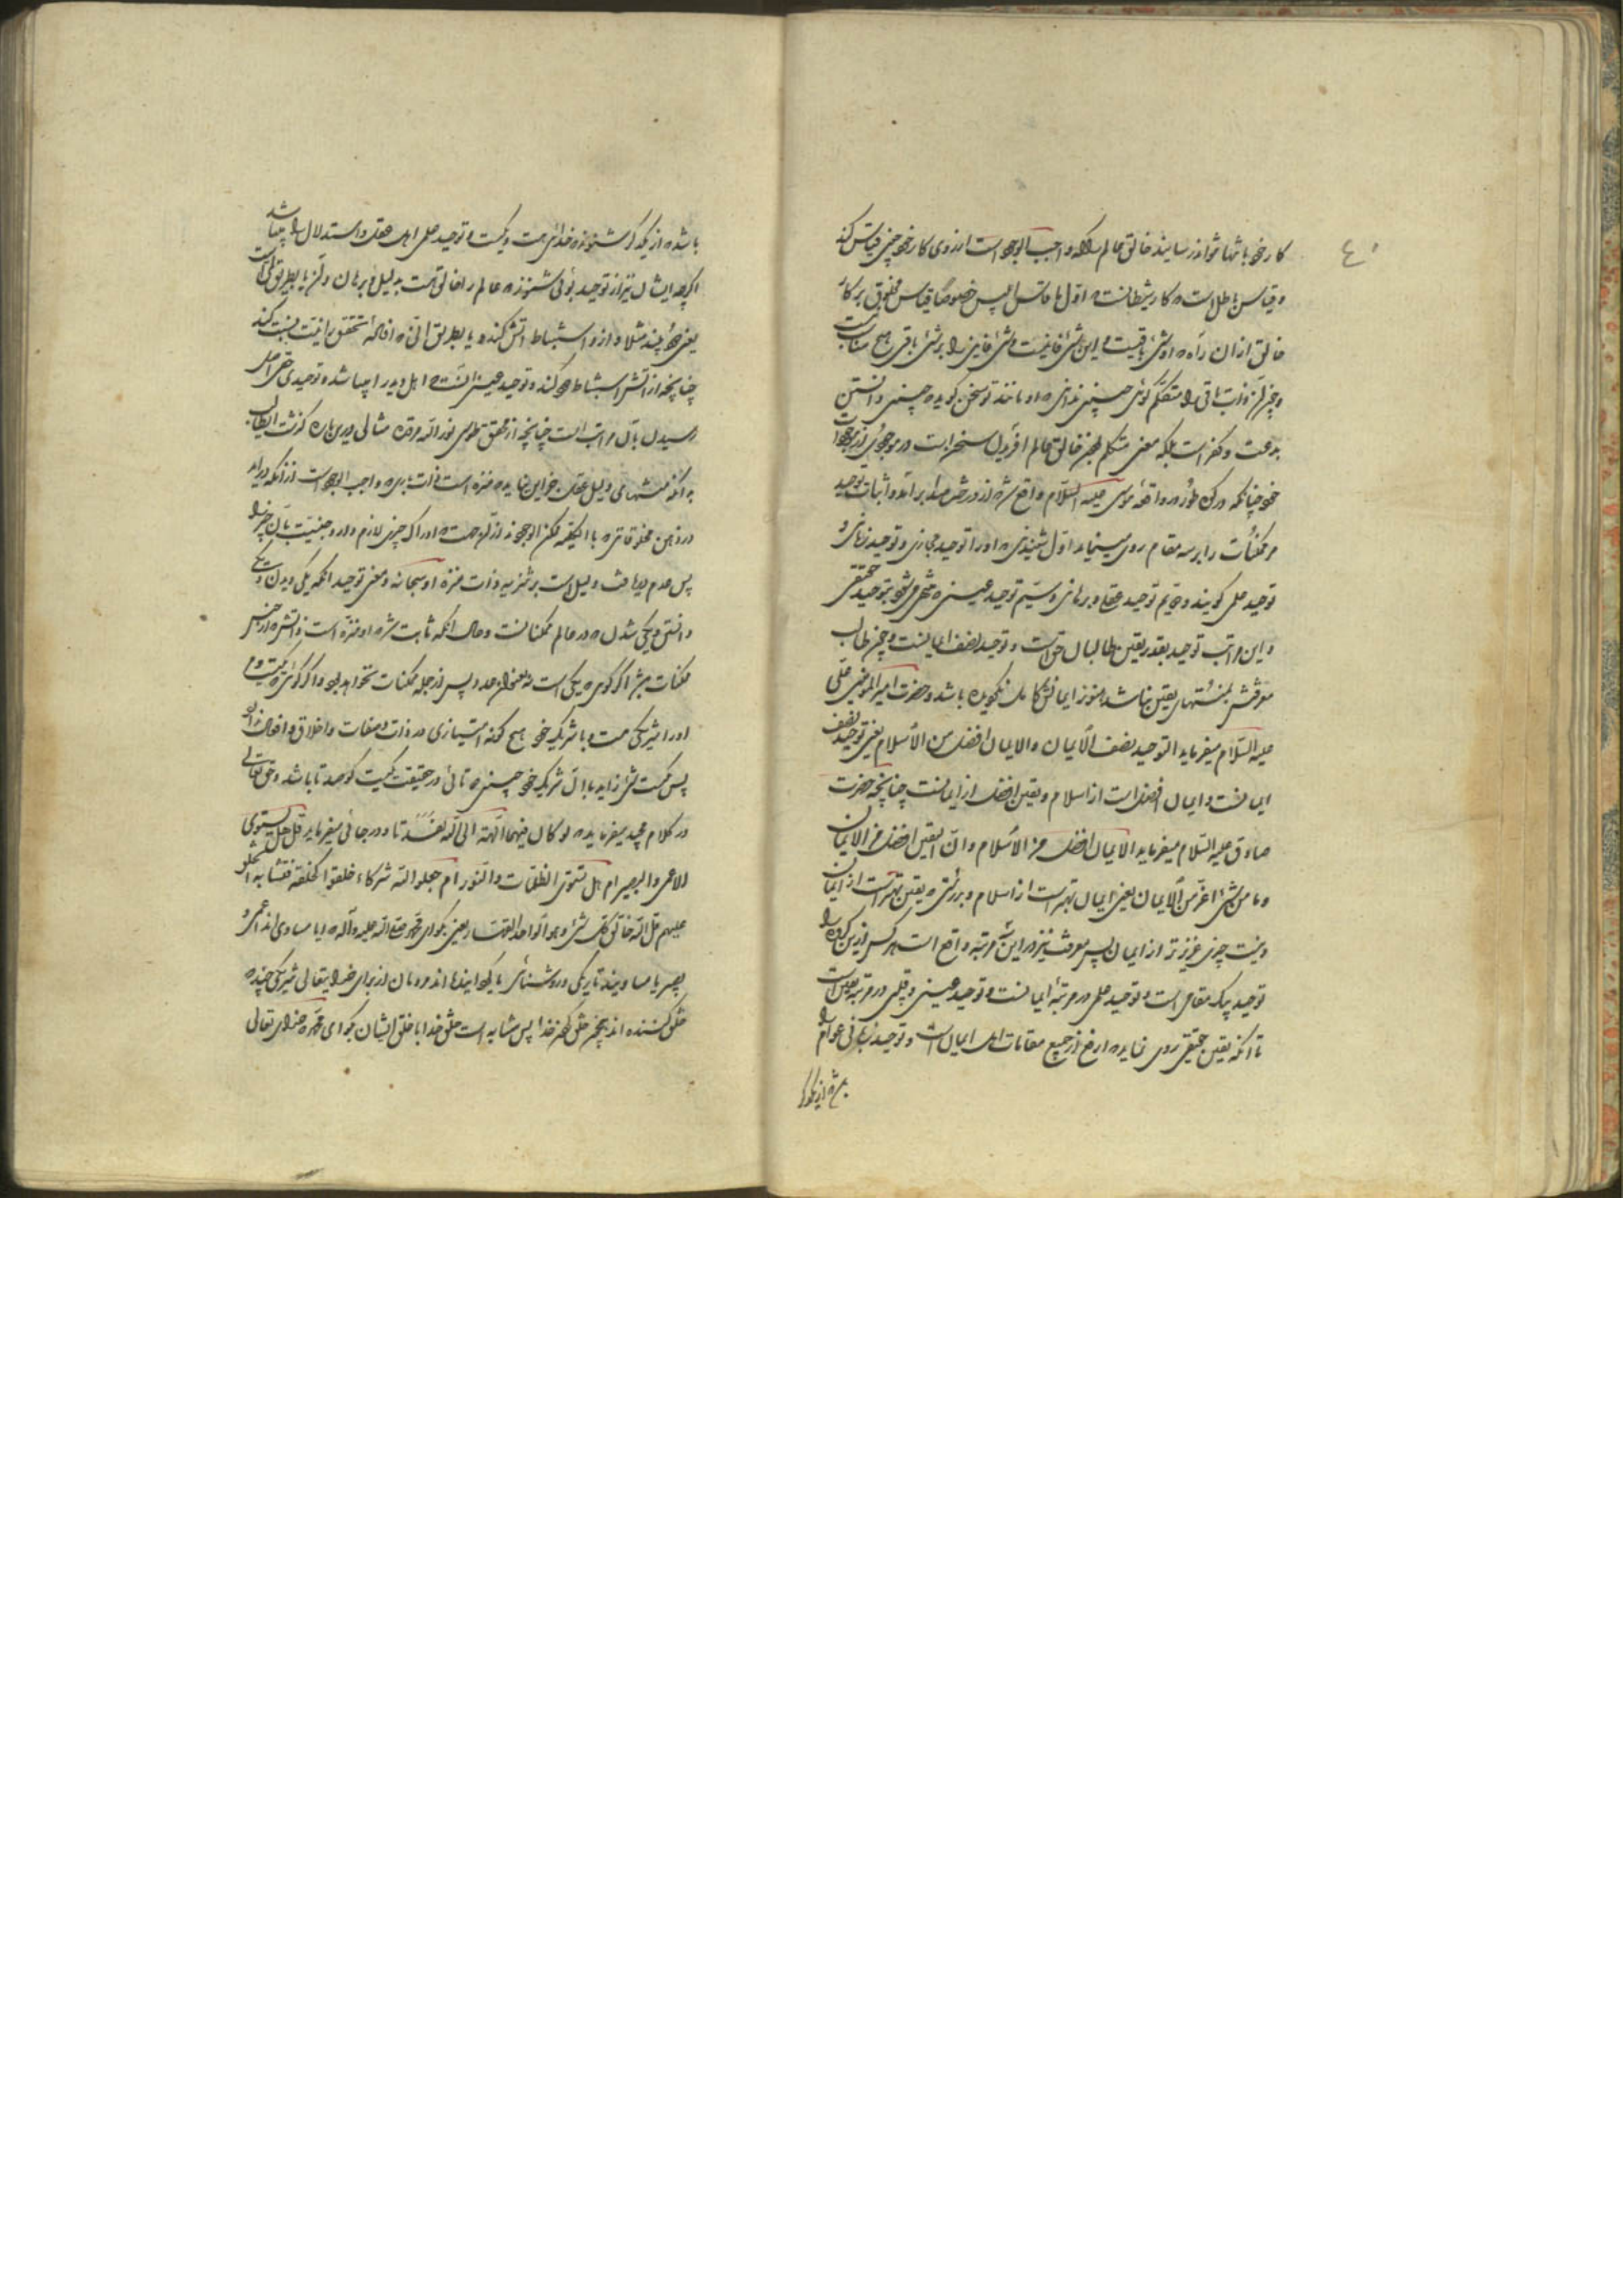 ٤٠
کار خود بانتها تواند رسانید خالق عالم را که واجب الوجود است از روی کار خود چنین قیاس کند
و قیاس باطل است که کار شیطانست که اول ما قاس ابلیس خصوصا قیاس مخلوق بر کار
خالق از ان راه که او شی باقیست و این شی فانیست و شی فانی را بر شی باقی هیچ مناسبت
و چون ذات باقی را متکلم گوئی چنین ندانی که او مانند تو سخن گوید که چنین دانستن
بدعت و کفر است بلکه معنی متکلم بودن خالق عالم افریدن سخن است در موجودی از موجودات
خود چنانکه در کوه طور در واقعه موسی علیه السلام واقع شد از درخت صدا بر آمد و اثبات توحید
مر ممکنات را بر سه مقام روی مینماید اول شنیدنی که او را توحید مجازی و توحید زبانی و
توحید علمی گویند و دویم توحید عقلی و برهانی و سیم توحید عینی که منتهی میشود بتوحید حقیقی
و این مراتب توحید بقدر یقین طالبان حق است و توحید نصف ایمانست و چون طالب
معرفتش بمنتهای یقین نباشد هنوز ایمانش کامل نگردیده باشد و حضرت امیر المومنین علی
علیه السلام میفرماید التوحید نصف الایمان والایمان افضل من الاسلام یعنی توحید نصف
ایمانست و ایمان افضل است از اسلام و یقین افضل از ایمانست چنانچه حضرت
صادق علیه السلام میفرماید الایمان افضل من الاسلام وان الیقین افضل من الایمان
وما من شئ اعز من الایمان یعنی ایمان بهتر است از اسلام و بدرستی که یقین بهتر است از ایمان
و نیست چیزی عزیز تر از ایمان پس معرفت نیز در این سه مرتبه واقع است هر کس از این گروه را
توحید بیک مقامی است و توحید علمی در مرتبه ایمانست و توحید عینی و قلبی در مرتبه یقین است
تا انکه یقین حقیقی روی نماید که ارفع از جمیع مقامات اهل ایمان است و توحید زبانی عوام را
باشد که از یکدیگر شنوند که خدای هست و یکیست و توحید علمی اهل عقل و استدلال را میباشد
اگرچه ایشان نیز از توحید بوئی شنوند که عالم را خالقی است بدلیل و برهان و لیکن یا بطریق لمی است
یعنی دود بیند مثلا و از و استنباط اتش کند و یا بطریق انی که افاده تحقق را نیت نسبت کند
چنانچه از اتش استنباط دود کند و توحید عینی انست که اهل دید را میباشد و توحیدی حقی اصل
رسیدن بآن مراتب است چنانچه از محقق طوسی نور الله مرقده مثالی در این باره گذشت ایطالب
بدانکه منتهای دلیل عقل جز این نیاید که منزه است ذات باری که واجب الوجود است از آنکه در اید
در ذهن مخلوقاتی که بالحقیقه ممکن الوجودند از آنجهت که ادراک چیزی لازم دارد جنسیت بآن چیز را
پس عدم دریافت دلیل است بر تنزیه ذات منزه او سبحانه و معنی توحید انکه یکی دیدن و یکی
دانستن و یکی شدن که در عالم ممکنانست و حال انکه ثابت شد که او منزه است ذاتش از جنس
ممکنات پس اگر گوی که یکی است نه بمعنای عدد پس از جمله ممکنات نخواهد بود و اگر گوئی که یکیست و
او را شریکی هست و با شریک خود هیچ گونه امتیازی در ذات و صفات و اخلاق و افعال ندارد
پس یکیست شی زاید با ان شریک خود چنین که تانی در حقیقت یکیست گو صد تا باشد و حق تعالی
در کلام مجید میفرماید که لو کان فیهما الهة الا الله لفسدتا و در جائی میفرماید قل هل یستوی
الاعمی والبصیر ام هل تستوی الظلمات والنور ام جعلوا لله شرکاء خلقوا کخلقه فتشابه الخلق
علیهم قل الله خالق کل شئ وهو الواحد القهار یعنی بگو ای محمد صلی الله علیه وآله که ایا مساوی اند اعمی و
بصیر یا مساویند تاریکی و روشنائی یا گردانیده اند مردمان از برای خدا یتعالی شریکی چند که
خلق کننده اند همچون خلق کردن خدا پس مشابه است خلق خدا با خلق ایشان بگو ای محمد که خدای تعالی